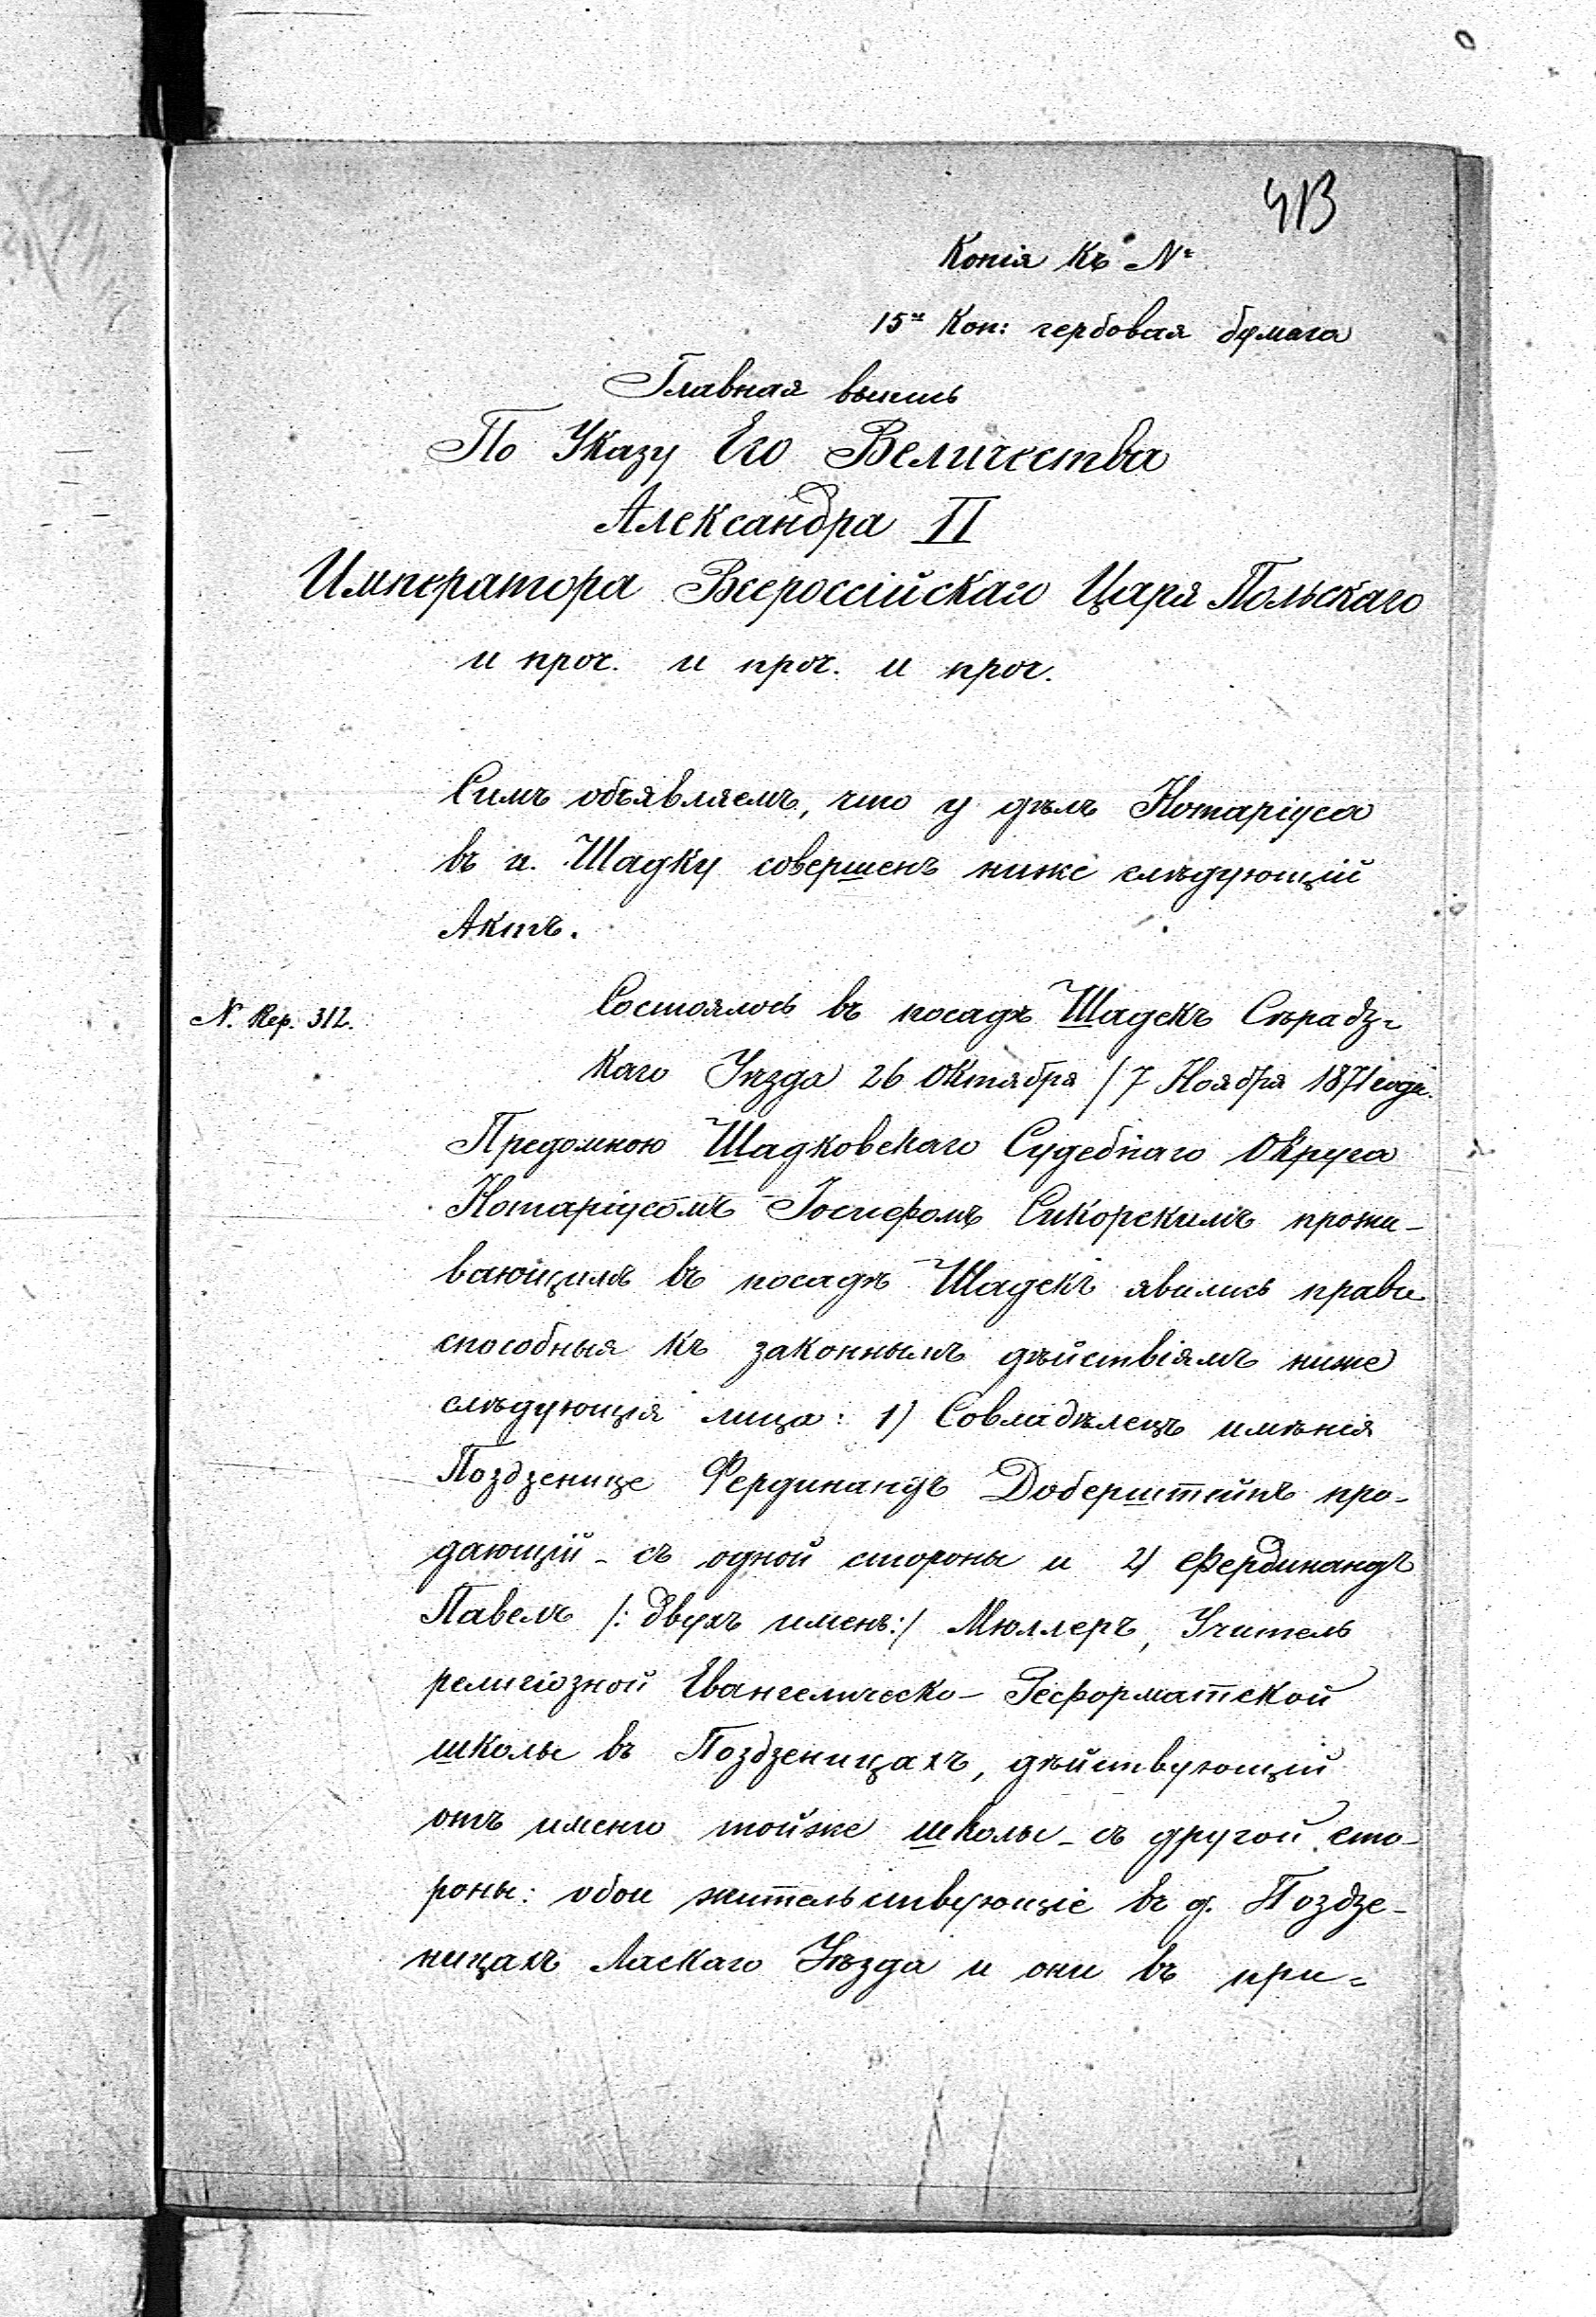 413
Копія Къ №
15ти Коп: гербовая бумага
Главная выпись
По Указу Его Величества
Александра II
Императора Всероссійскаго Царя Польскаго
и проч. и проч. и проч.
Симъ объявляемъ, что у дѣлъ Нотаріуса
въ п. Шадку совершенъ ниже слѣдующій
Актъ.
N. Rep. 312.
Состоялось въ посадѣ Шадекъ Сѣрадз=
каго Уѣзда 26 Октября / 7 Ноября 1871 года.
Предомною Шадковскаго Судебнаго Округа
Нотаріусомъ Іосифомъ Сикорскимъ прожи-
вающимъ въ посадѣ Шадекъ явились право
способныя къ законнымъ дѣйствіямъ ниже
слѣдующія лица: 1) Совладѣлецъ имѣнія
Поздзенице Фердинандъ Доберштейнъ про-
дающій - съ одной стороны и 2) Фердинандъ
Павелъ /: двухъ именъ:/ Мюллеръ, Учитель
религіозной Евангелическо - Реформатской
школы въ Поздзеницахъ, дѣйствующій
отъ имени тойже школы - съ другой сто-
роны: обои жительствующіе въ д. Поздзе-
ницахъ Ласкаго Уѣзда и они въ при=